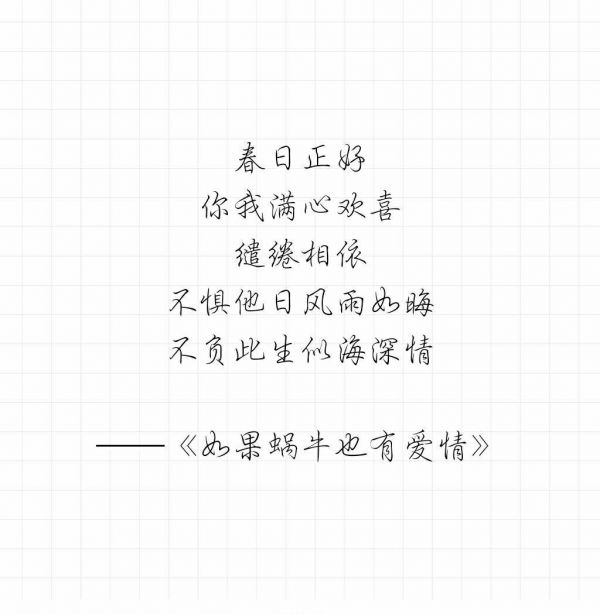 春日正好
你我满心欢喜
缱绻相依
不惧他日风雨如晦
不负此生似海深情
——《如果蜗牛也有爱情》